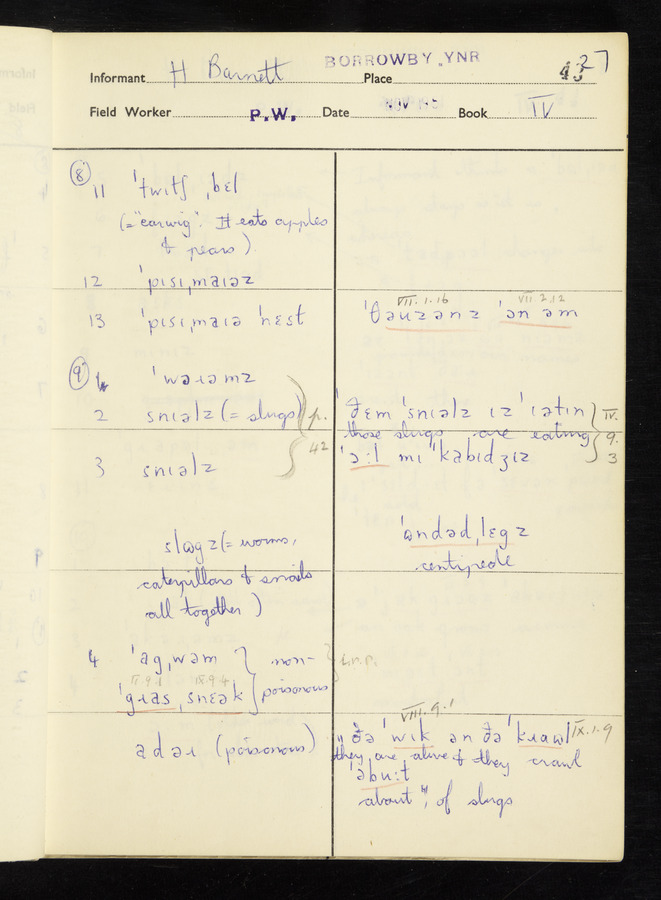 BORROWBY, YNR
Informant H Barnett Place 27
Field Worker P.W. Date Book IV
8
11 ˈtwɪtʃ ˌbɛl
(= "earwig". It eats apples
& pears).
12 ˈpɪsɪˌmaɪəz
13 ˈpɪsɪˌmaɪə ˈnɛst
9
ˈwəɹəmz
2 snɪəlz (= slugs) p.
42
3 snɪəlz
slɒgz (= worms,
caterpillars & snails
all together)
4 ˈagˌwəm } non-
ˈgɹasˌsnɛək } poisonous
IX.9.4
adəɹ (poisonous)
VII.1.16 VII.2.12
ˈθəuzənz ˈən əm
ˈðɛm ˈsnɪəlz ɪz ˈɪətɪn } IV.
those slugs are eating 9.
ˈɔ:l mɪ ˈkabɪdʒɪz 3
ˈɒndədˌlɛgz
centipede
VIII.9.1
"ðə ˈwɪk ən ðə ˈkɹawl IX.1.9
they are alive & they crawl
əˈbu:t
about", of slugs